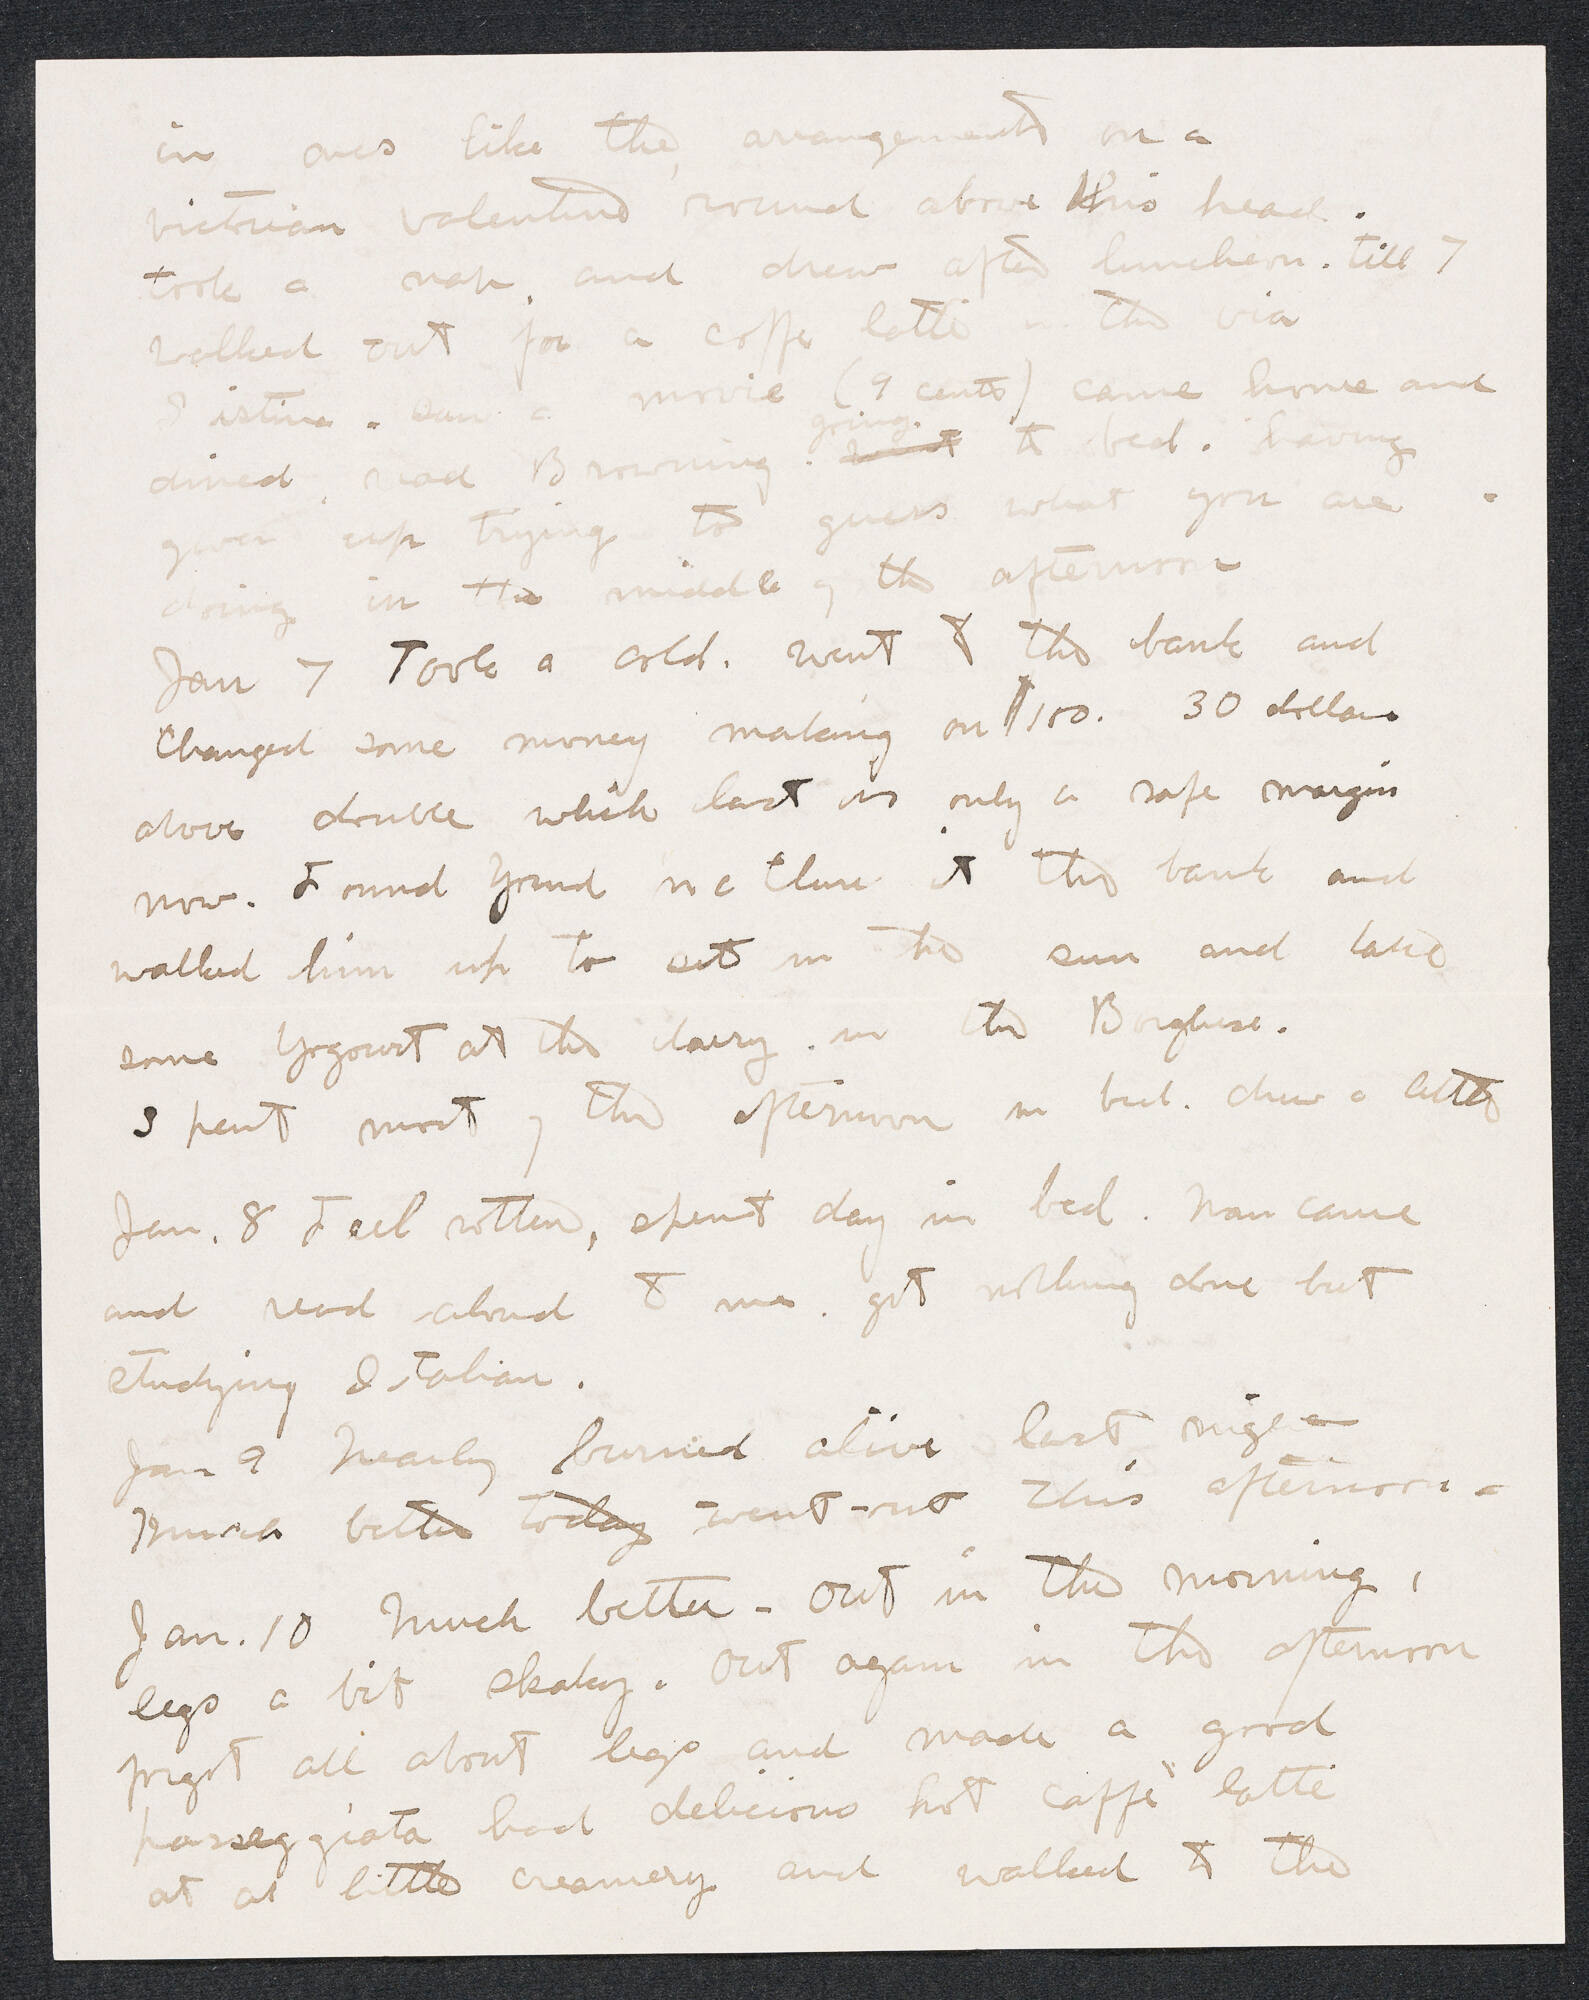 in ones like the arrangements on a
victorian valentine round above his head.
took a nap, and drew after luncheon. till 7
walked out for a caffe latte in the via
Sistina. saw a movie (9 cents) came home and
dined, read Browning. going to bed. having
given up trying to guess what you are
doing in the middle of the afternoon
Jan 7 Took a cold. went to the bank and
Changed some money making on $100. 30 dollars
above double which last is only a safe margin
now. Found McClure at the bank and
walked him up to sit in the sun and take
some Yogourt at the dairy. in the Borghese.
Spent most of the afternoon in bed. drew a little
Jan. 8 Feel rotten, spent day in bed. Nan came
and read aloud to me. got nothing done but
studying Italian.
Jan 9 Nearly burned alive last night
Much better today went out this afternoon.
Jan. 10 Much better - out in the morning,
legs a bit shaky. Out again in the afternoon
forgot all about legs and made a good
passeggiata had delicious hot caffè latte
at a little creamery and walked to the